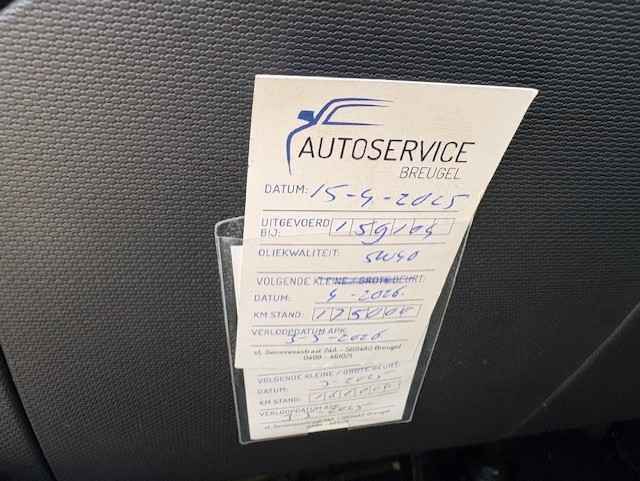 AUTOSERVICE
BREUGEL
DATUM: 15-4-2025
UITGEVOERD
BIJ: 159104
OLIEKWALITEIT: 5W40
VOLGENDE KLEINE / GROTE BEURT:
DATUM: 4-2026.
KM STAND: 175000
VERLOOPDATUM APK:
5-5-2026
VOLGENDE KLEINE / GROTE BEURT:
DATUM: 3-2025
KM STAND:
VERLOOPDATUM